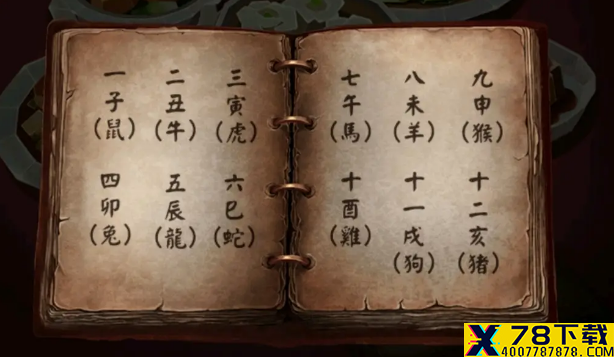 一子(鼠)
二丑(牛)
三寅(虎)
四卯(兔)
五辰(龍)
六巳(蛇)
七午(馬)
八未(羊)
九申(猴)
十酉(雞)
十一戌(狗)
十二亥(猪)
78下载
4007787878.COM